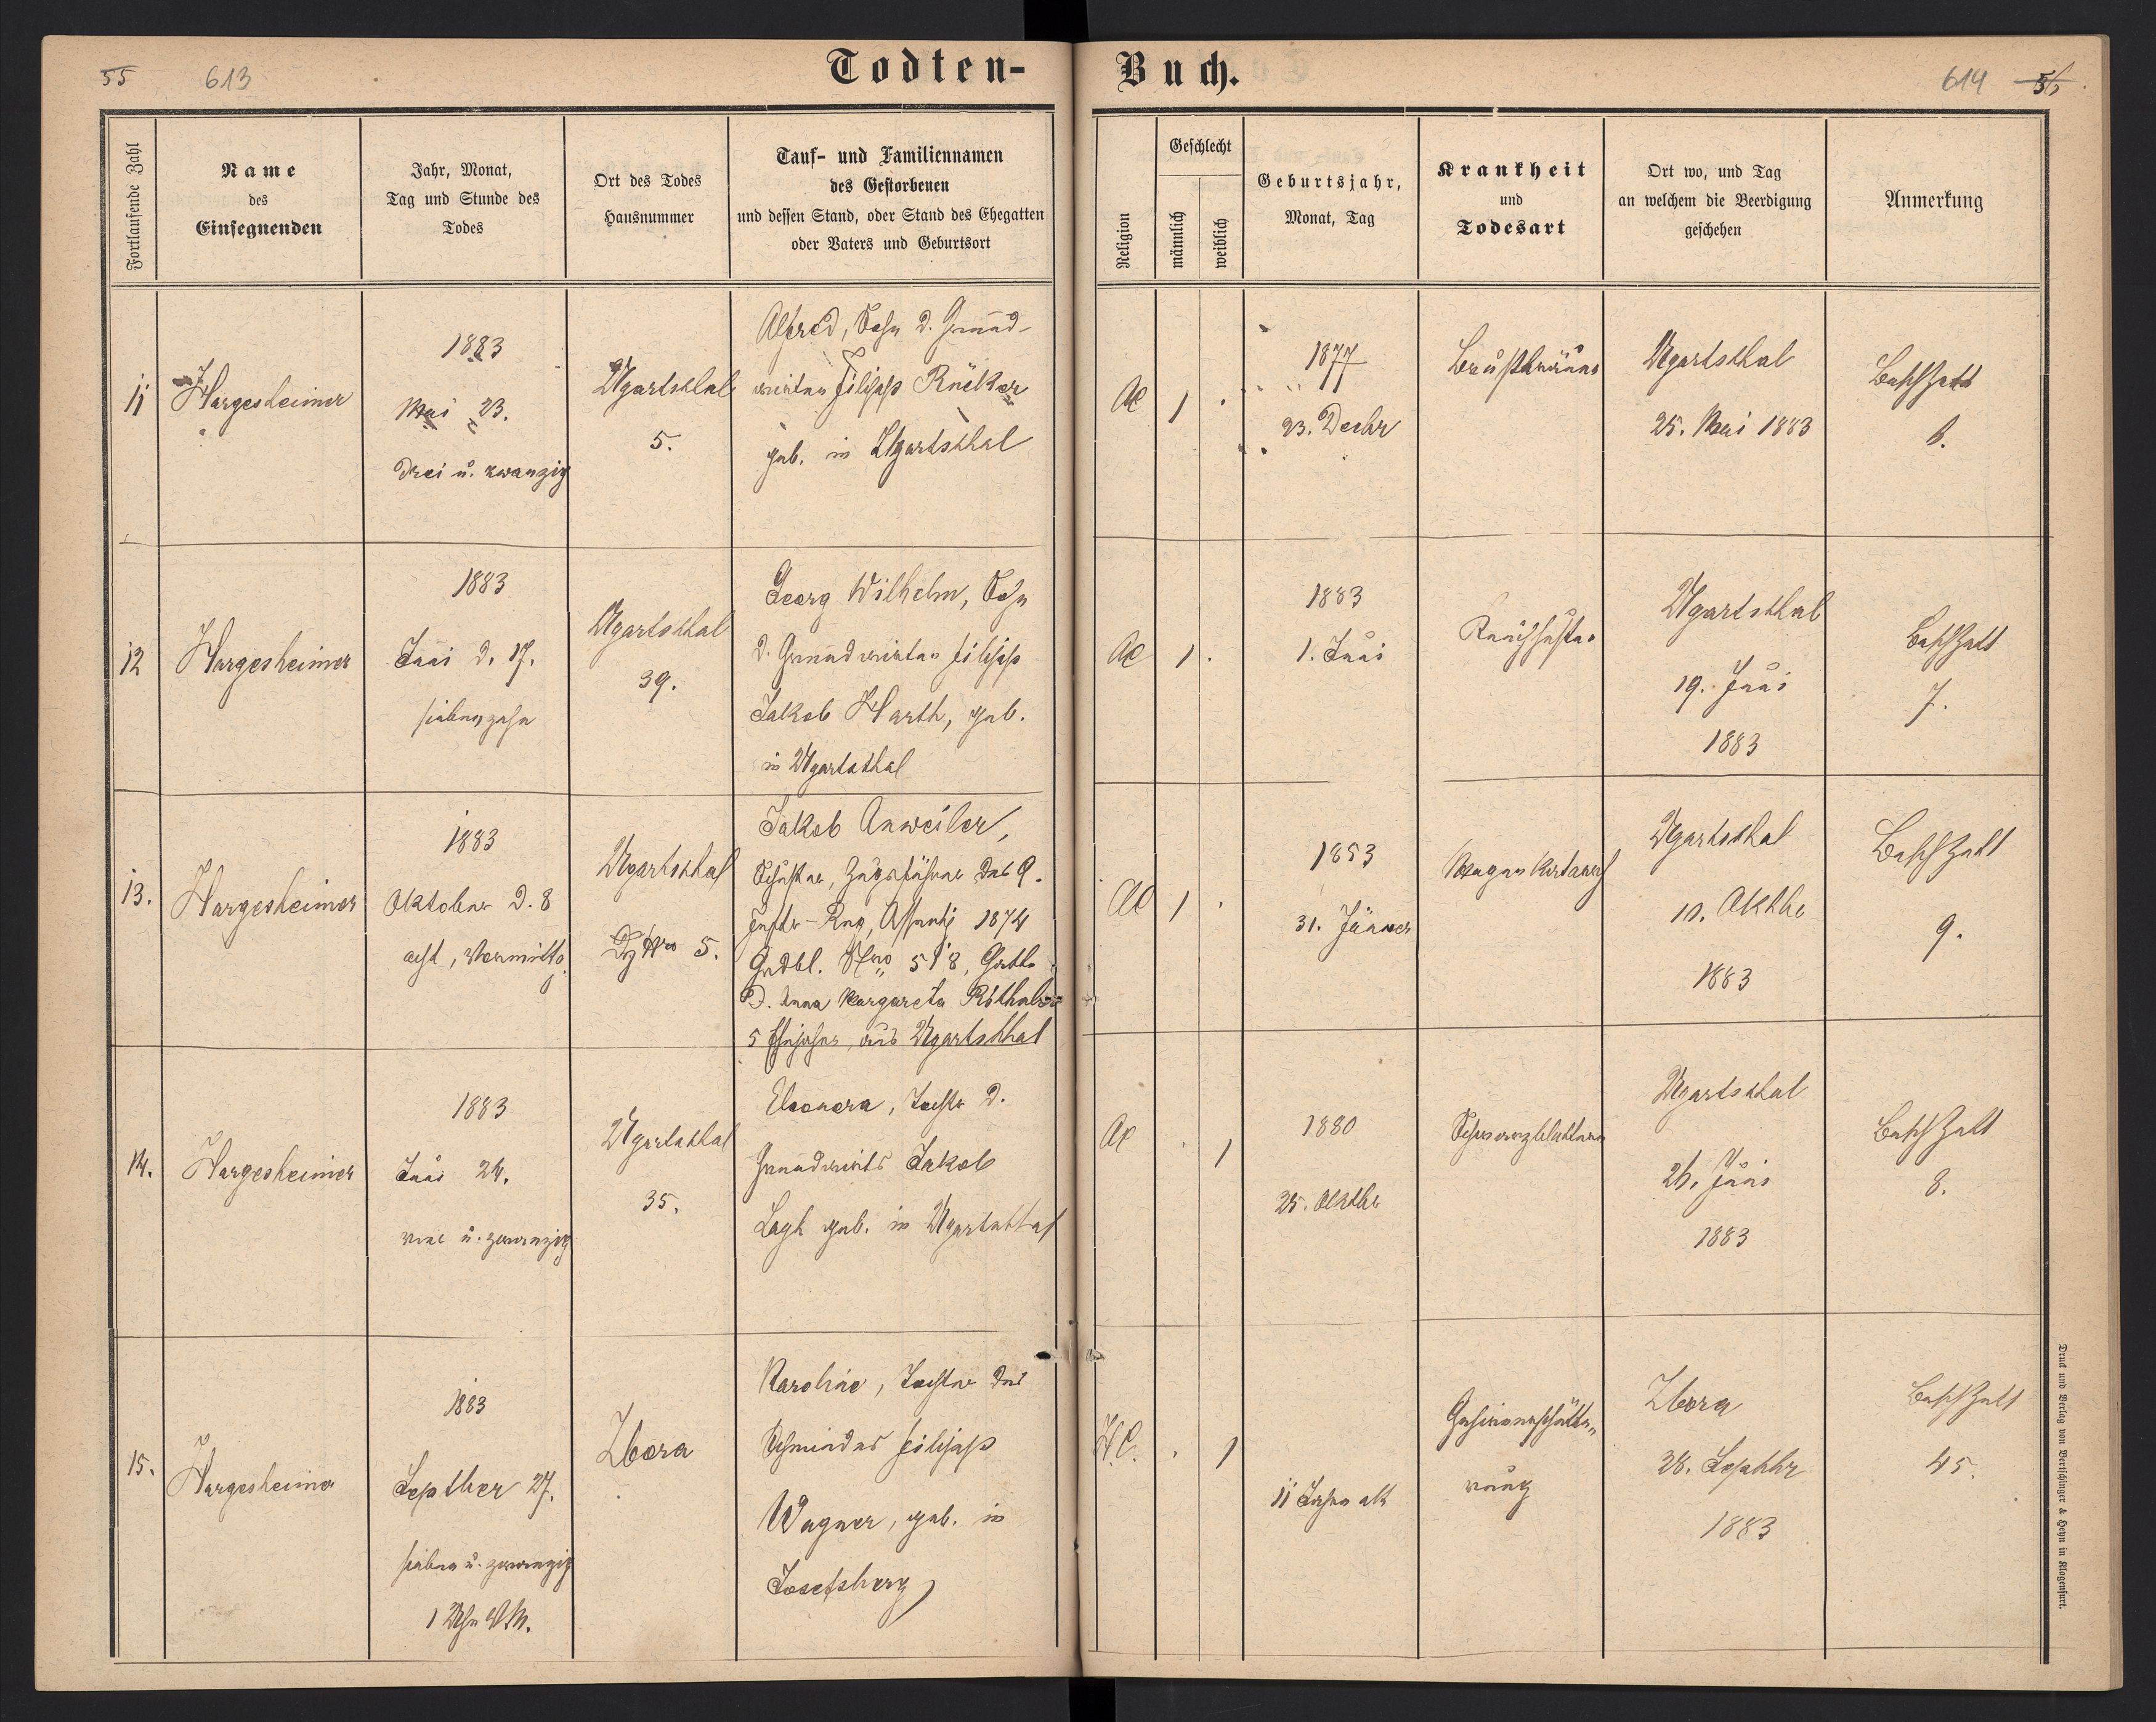 55 613
Todten-
Buch.
614 56
Fortlaufende Zahl
Name
des
Einsegnenden
Jahr, Monat,
Tag und Stunde des
Todes
Ort des Todes
Hausnummer
Tauf- und Familiennamen
des Gestorbenen
und dessen Stand, oder Stand des Ehegatten
oder Vaters und Geburtsort
Religion
Geschlecht
männlich
weiblich
Geburtsjahr,
Monat, Tag
Krankheit
und
Todesart
Ort wo, und Tag
an welchem die Beerdigung
geschehen
Anmerkung
11
Hargesheimer
1883
Mai 23.
drei u. zwanzig
Ugartsthal
5.
Alfred, Sohn d. Grund-
wirten Filipp Rücker
geb. in Ugartsthal
AC
1
1877
23. Decbr
Brustbräune
Ugartsthal
25. Mai 1883
BeschZett
6.
12
Hargesheimer
1883
Juni d. 17.
siebenzehn
Ugartsthal
39.
Georg Wilhelm, Sohn
d. Grundwirten Filipp
Jakob Harth, geb.
in Ugartsthal
AC
1
1883
1. Juni
Keuchhusten
Ugartsthal
19. Juni
1883
BeschZett
7.
13.
Hargesheimer
1883
Oktober d. 8
acht, Vormittg
Ugartsthal
5.
Jakob Anweiler,
Schuster, Zugsführer des 9.
Inftr-Reg, Assentj 1874
Grdbl. Nro 518, Gatte
d. Anna Margareta
5 Ehejahre, aus Ugartsthal
AC
1
1853
31. Jänner
Magen
Ugartsthal
10. Oktbr
1883
BeschZett
9.
14.
Hargesheimer
1883
Juni 24.
vier u. zwanzig
Ugartsthal
35.
Eleonora, Tochter d.
Grundwirts Jakob
geb. in Ugartsthal
AC
1
1880
25. Oktbr
Schwarzblattern
Ugartsthal
26. Juni
1883
BeschZett
8.
15.
Hargesheimer
1883
Septber 27.
sieben u. zwanzig
1 Uhr VM.
Zbora
Karoline, Tochter des
Schmiedes Filipp
Wagner, geb. in
Josefsberg
HC.
1
11 Jahre alt
Gehirnerschütte-
rung
Zbora
28. Septbr
1883
BeschZett
45.
Druck und Verlag von Bertschinger & Heyn in Klagenfurt.